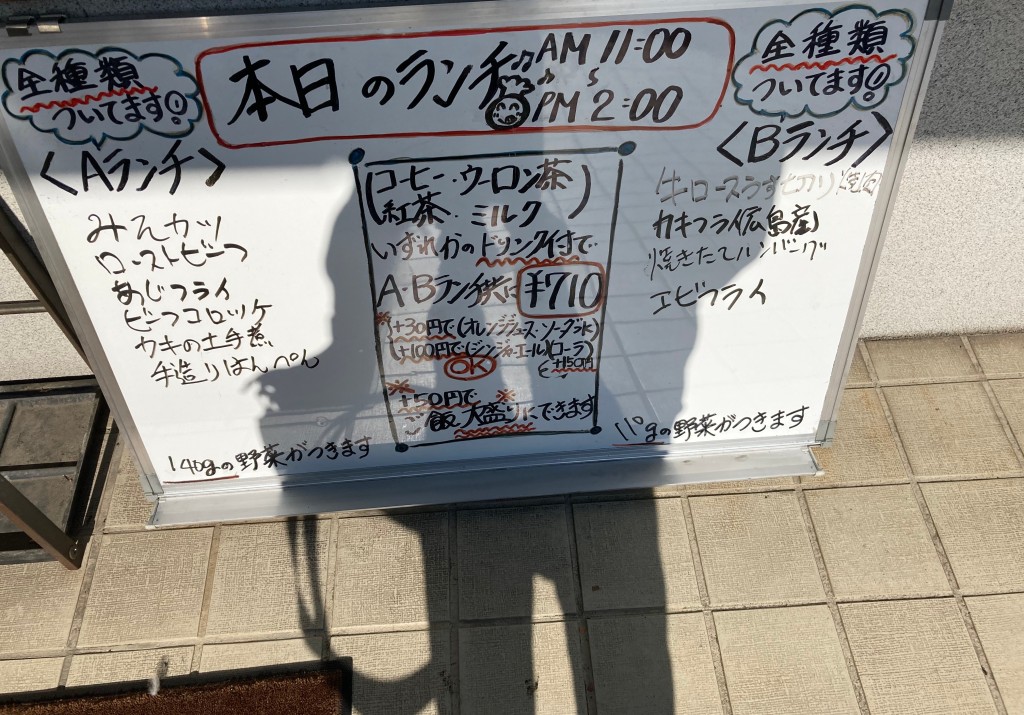 全種類
ついてます!
本日のランチ
AM 11:00
〜
PM 2:00
全種類
ついてます!
<Aランチ>
みそカツ
ローストビーフ
あじフライ
ビーフコロッケ
カキの土手煮
手造りはんぺん
140gの野菜がつきます
(コーヒー・ウーロン茶
紅茶・ミルク)
いずれかのドリンク付で
A・Bランチ共に ¥710
※+30円で(オレンジジュース・ソーダ水)
(+100円で(ジンジャエール)(コーラ)
OK +150円
※+50円で※
ご飯大盛りにできます
<Bランチ>
牛ロースうす切り焼肉
カキフライ広島産
焼きたてハンバーグ
エビフライ
110gの野菜がつきます